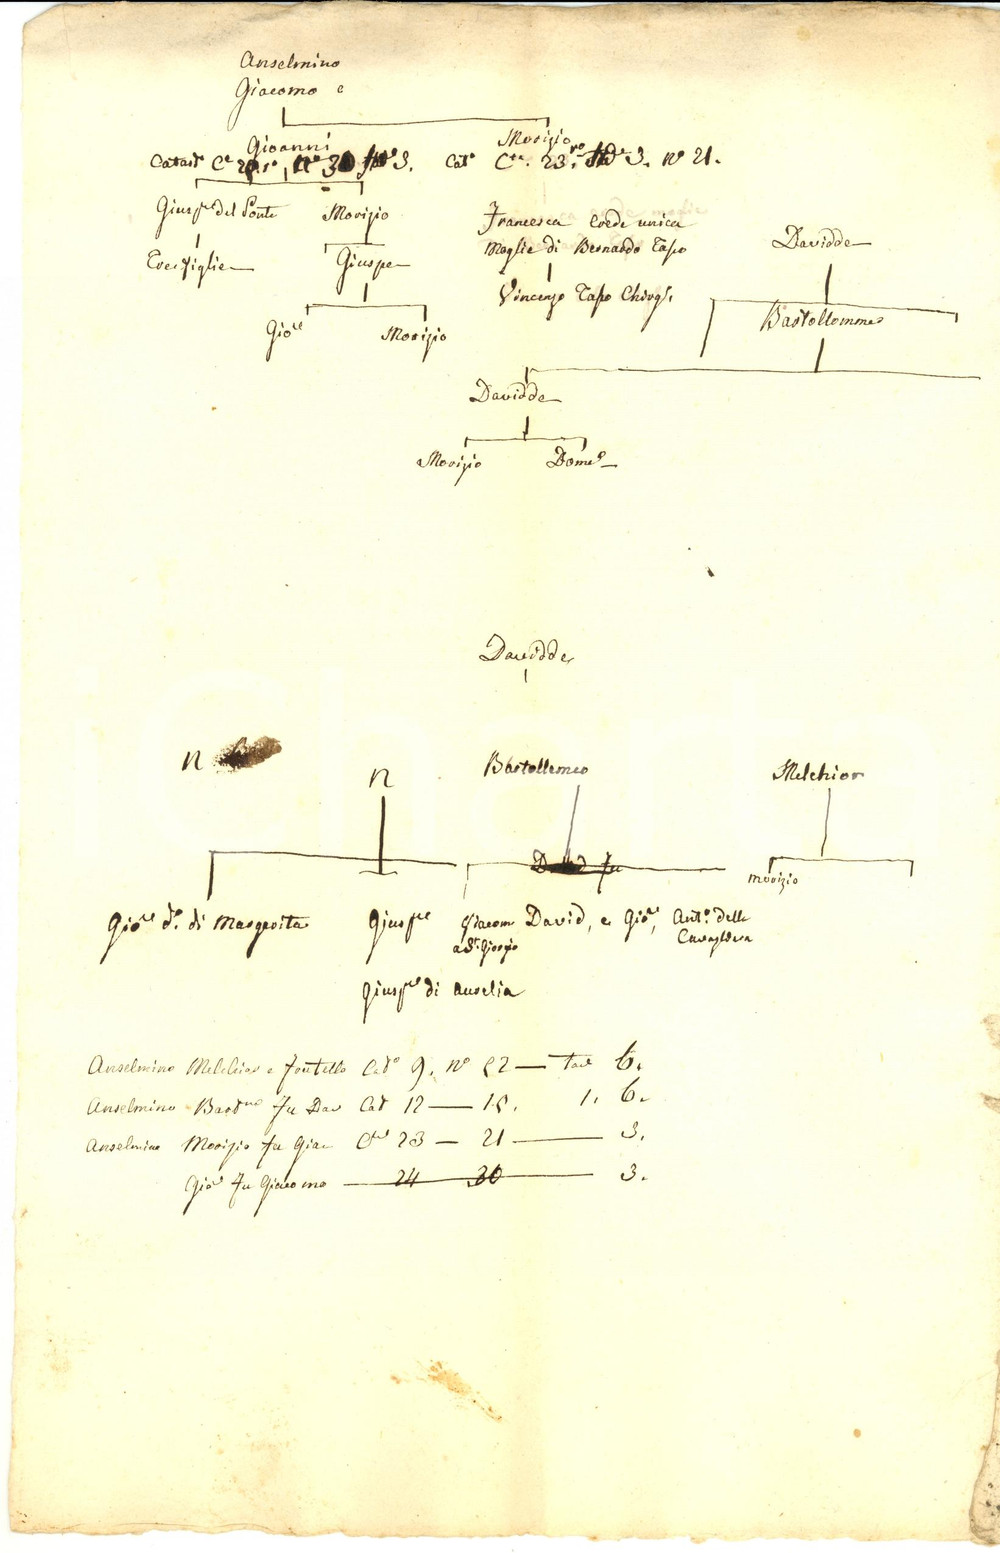 Anselmino
Giacomo e
Gioanni
Morizio
Catas.to C.e 3.
Cat.o C.te 23. 3. n.o 21.
Gius.pe del Ponte
Morizio
Francesca Erede unica
Davidde
Tre figlie
Giuspe
Moglie di Bernardo Tapo
Vincenzo Tapo Chirg.
Bartollommeo
Gio.ni
Morizio
Davidde
Morizio
Dome.o
Davidde
n
n
Bartollomeo
Melchior
morizio
Gio.ni d.o di Margarita
Gius.pe
Giacom David, e Gio.ni, Ant.o della
a S.t Giorgio
Gius.pe di Aurelia
Anselmino Melchior e fratello Cat.o 9. n.o 22 — tav 6.
Anselmino Bart.meo fu Dav Cat 12 — 15. 1. 6.
Anselmino Morizio fu Giac C.te 23 — 21 — 3.
Gio.ni fu Giacomo — 24 30 — 3.
iCharta